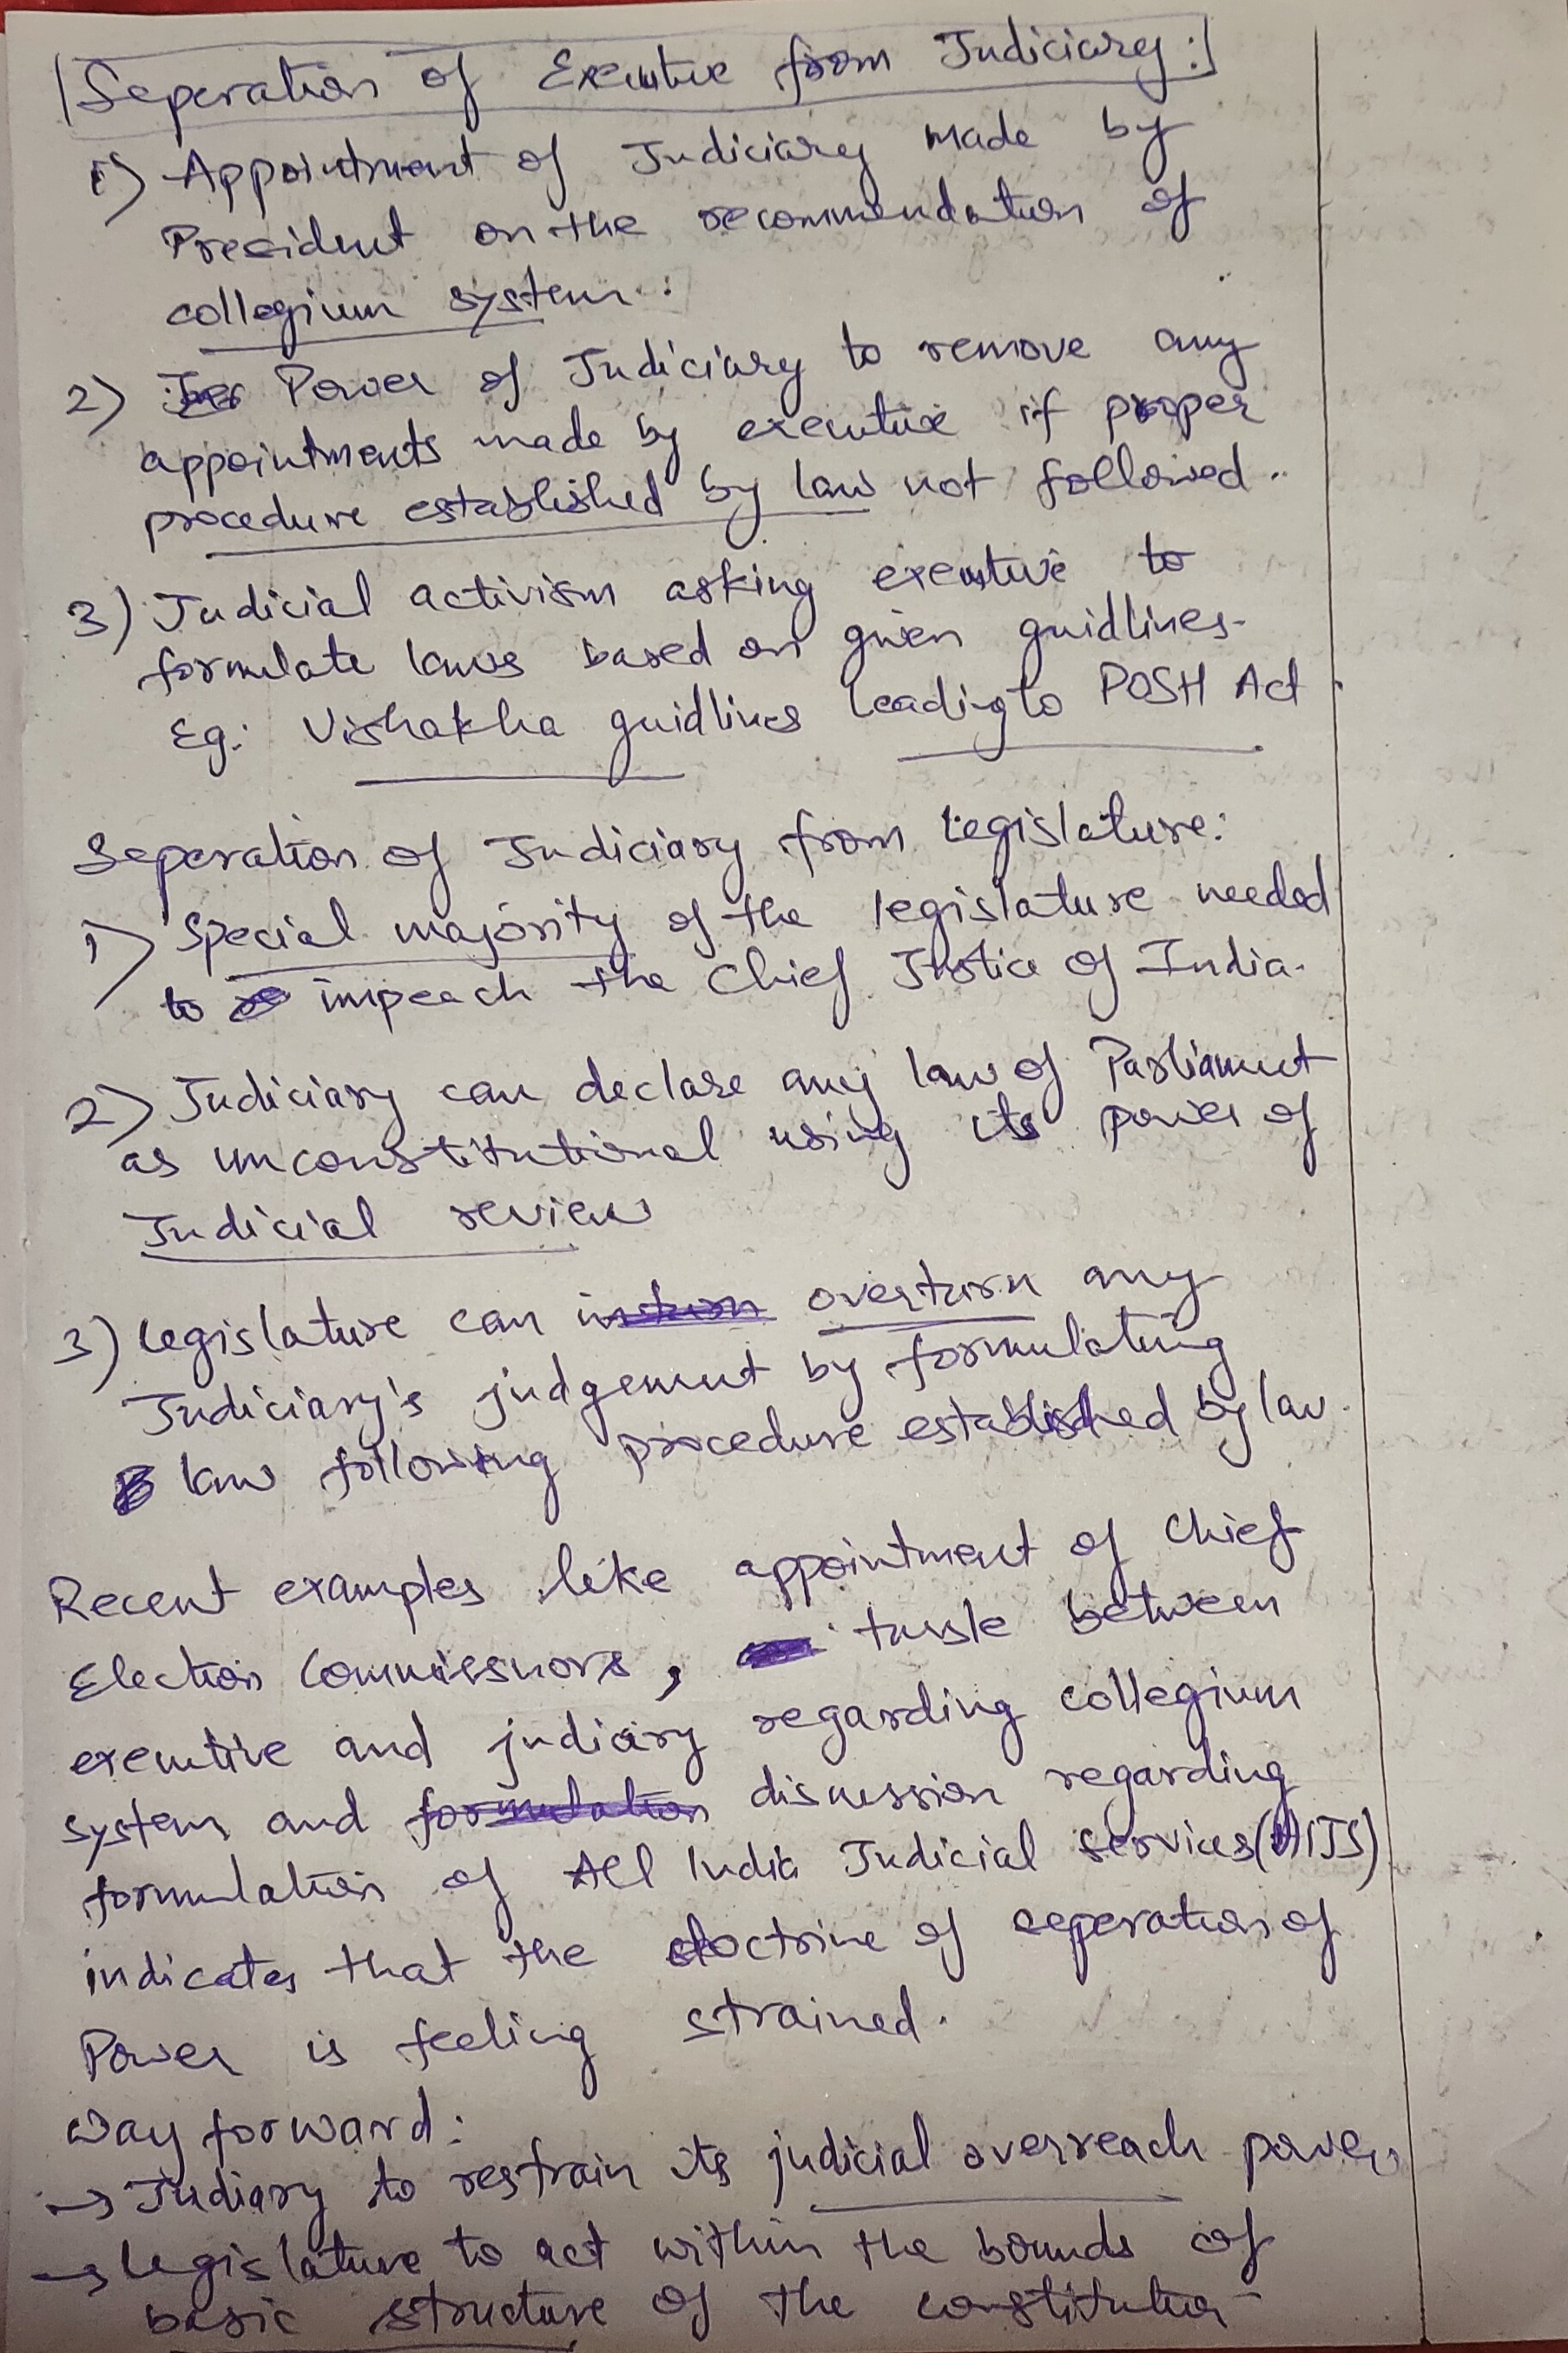 Seperation of Executive from Judiciary:
1) Appointment of Judiciary made by
President on the recommendation of
collegium system.
2) Power of Judiciary to remove any
appointments made by executive if proper
procedure established by law not followed.
3) Judicial activism asking executive to
formulate laws based on given guidlines.
Eg: Vishakha guidlines leading to POSH Act.
Seperation of Judiciary from legislature:
1) Special majority of the legislature needed
to impeach the Chief Jsotice of India.
2) Judiciary can declare any law of Parliament
as unconstitutional using its power of
Judicial review
3) legislature can overturn any
Judiciary's judgement by formulating
law following procedure established by law.
Recent examples like appointment of Chief
Election Commiesnors, tussle between
executive and judiciary regarding collegium
system and discussion regarding
formulation of All India Judicial services (AIJS)
indicates that the doctrine of seperation of
Power is feeling strained.
Way forward:
→ Judiary to restrain its judicial overreach power
→ legislature to act within the bounds of
basic structure of the constitution